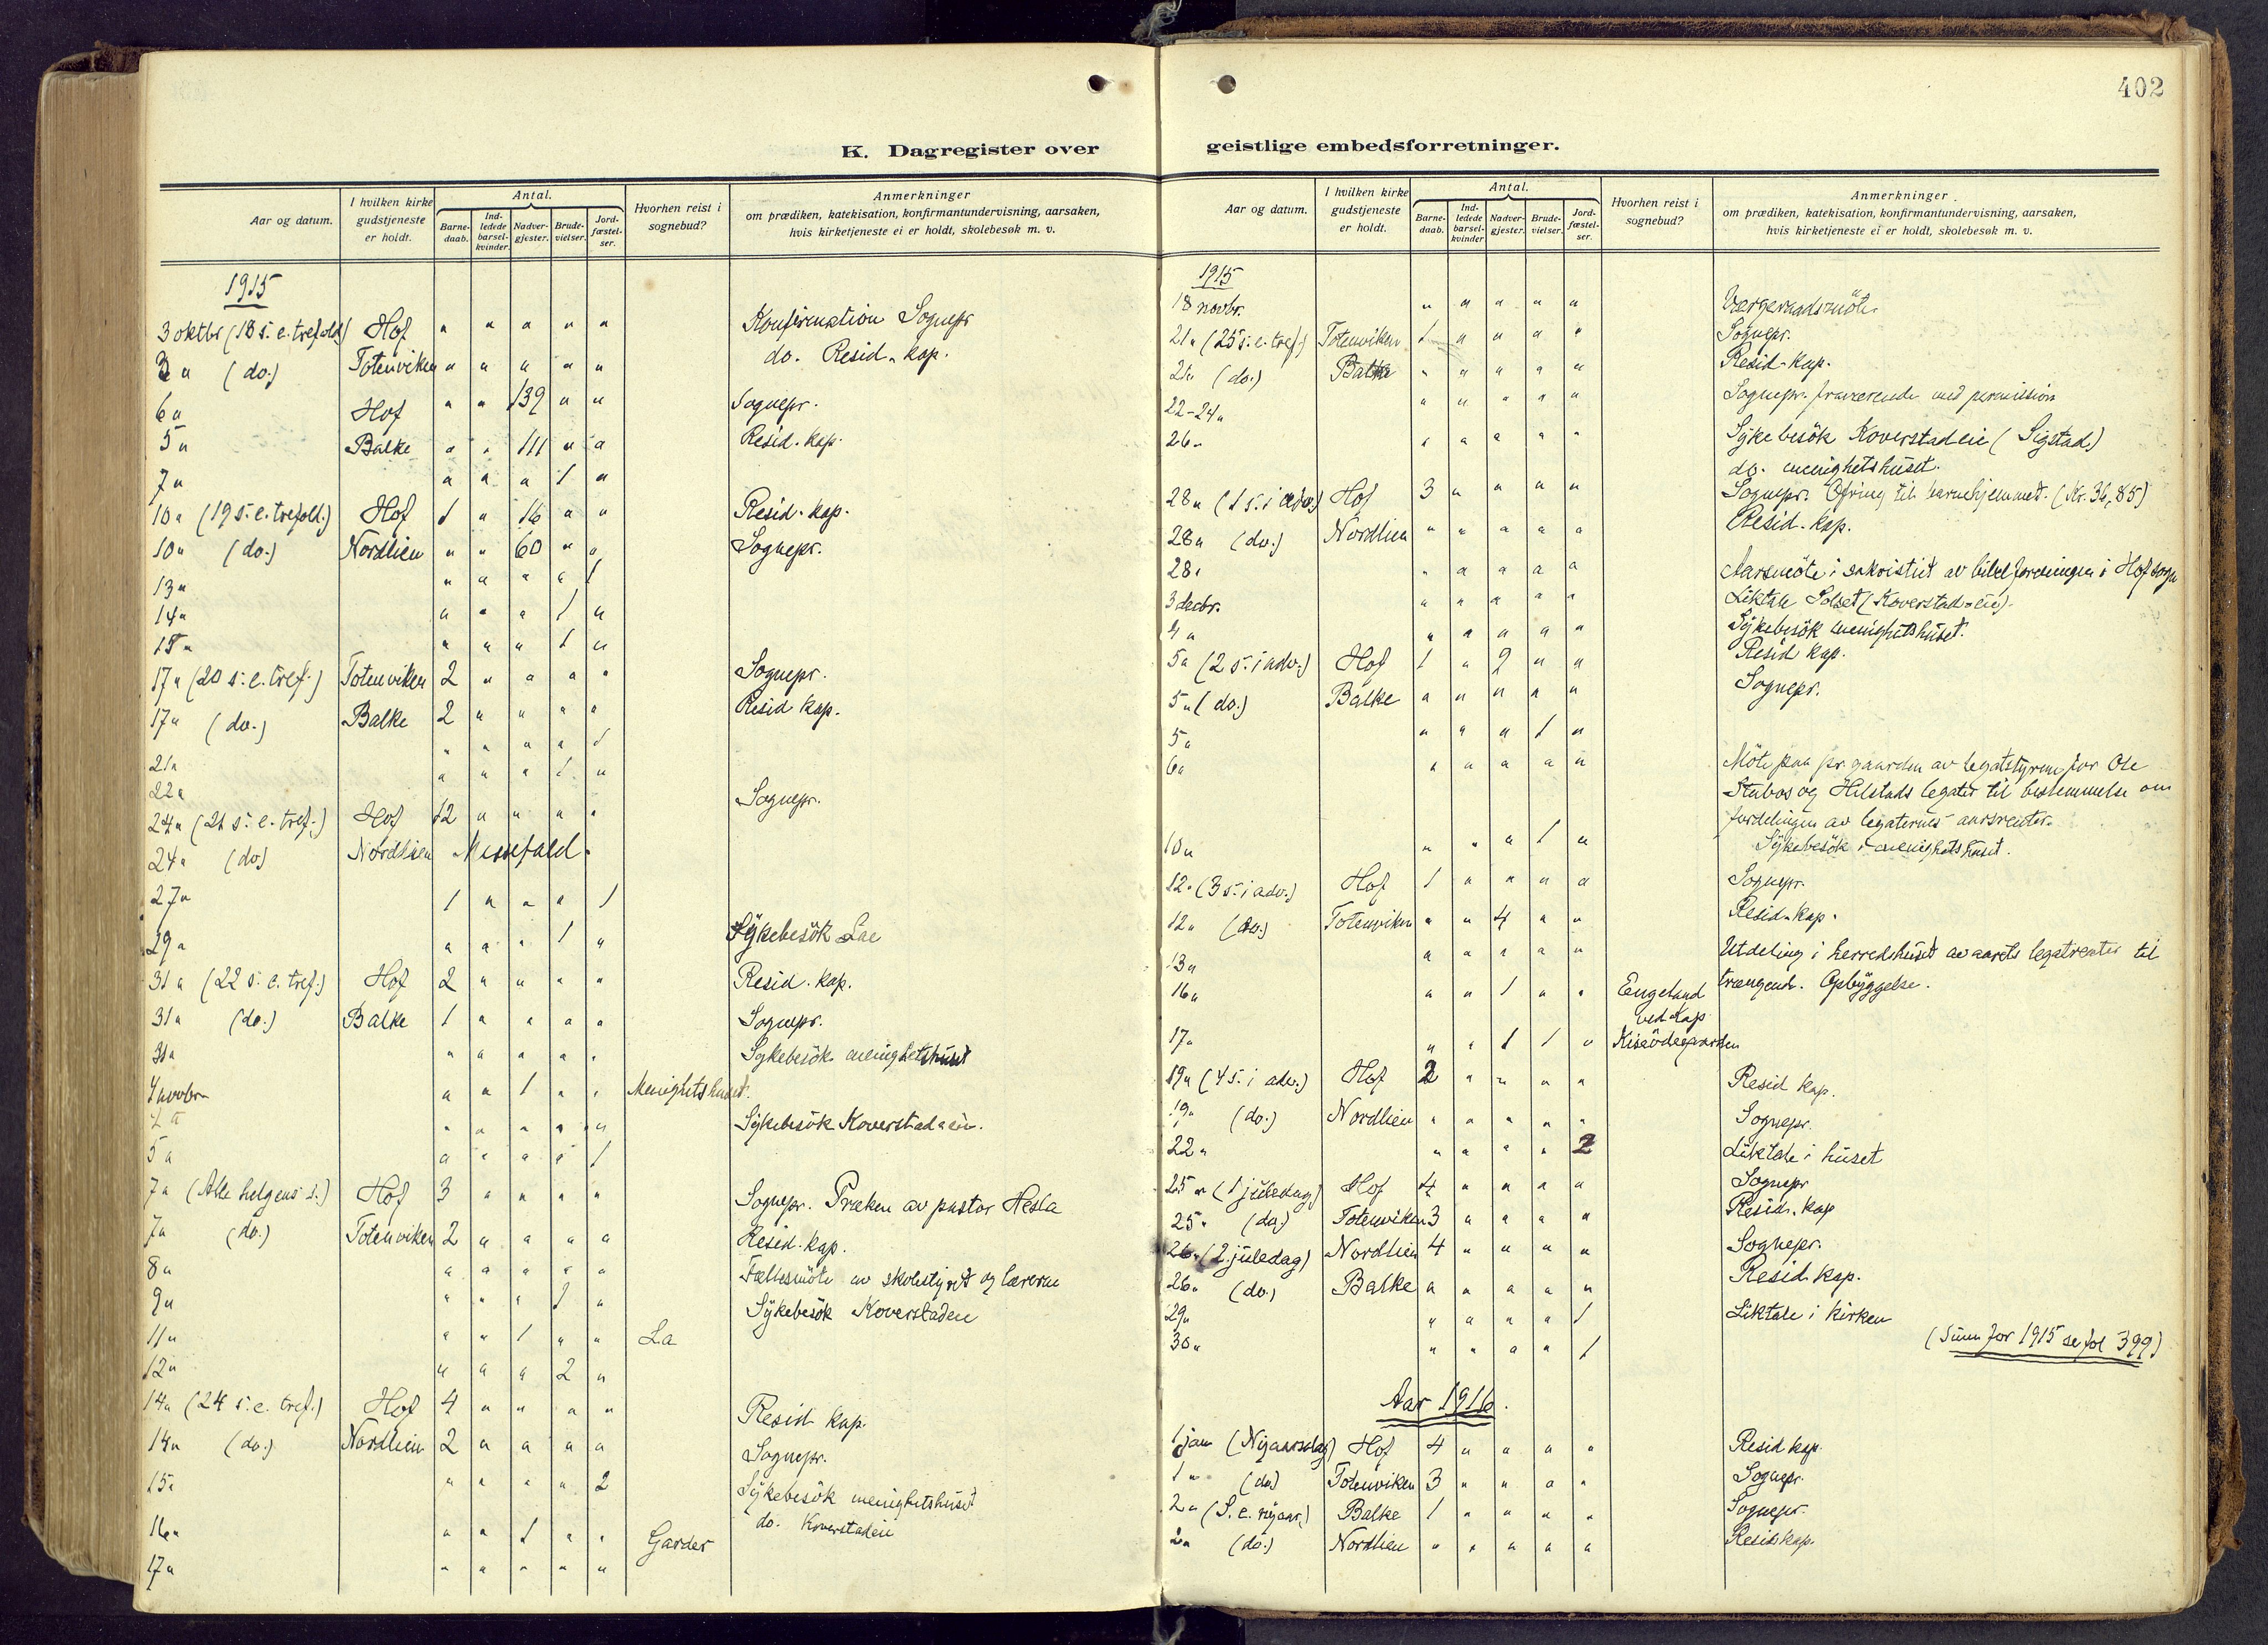 402
K. Dagregister over geistlige embedsforretninger.
Aar og datum.
I hvilken kirke gudstjeneste er holdt.
Antal.
Barne-daab.
Ind-ledede barsel-kvinder.
Nadver-gjester.
Brude-vielser.
Jord-fæstel-ser.
Hvorhen reist i sognebud?
Anmerkninger
om prædiken, katekisation, konfirmantundervisning, aarsaken,
hvis kirketjeneste ei er holdt, skolebesøk m. v.
1915
3 oktbr (18 s. e. trefold.) Hof " " " " " Konfirmation Sognepr
3 " (do.) Totenviken " " " " " do. Resid. kap.
6 " Hof " " 139 " " Sognepr.
5 " Balke " " 111 " " Resid. kap.
7 " " " " 1 "
10 " (19 s. e. trefold.) Hof 1 " 16 " " Resid. kap.
10 " (do.) Nordlien " " 60 " " Sognepr.
13 " " " " " 1
14 " " " " 1 "
15 " " " " 1 "
17 " (20 s. e. tref.) Totenviken 2 " " " " Sognepr.
17 " (do.) Balke 2 " " " " Resid kap.
21 " " " " " 1
22 " " " " 1 "
24 " (21 s. e. tref.) Hof 12 " " " " Sognepr.
24 " (do) Nordlien Messefald.
27 " 1 " " " 1
29 " " " " 1 " Sykebesök Lae
31 " (22 s. e. tref.) Hof 2 " " " " Resid. kap.
31 " (do.) Balke 1 " " " " Sognepr.
31 " " " " " " Sykebesök menighetshuset
4 novbr " " 1 " " Menighetshuset.
4 " " " " " " Sykebesök Koverstadeie.
5 " " " " " 1
7 " (Alle helgens s.) Hof 3 " " " " Sognepr. Præken av pastor Hesla
7 " (do.) Totenviken 2 " " " " Resid. kap.
8 " " " " " " Fællesmöte av skolestyret og lærerne
9 " " " " 1 " Sykebesök Koverstadeie
11 " " " 1 " " La
12 " " " " 2 "
14 " (24 s. e. tref.) Hof 4 " " " " Resid kap.
14 " (do.) Nordlien 2 " " " " Sognepr.
15 " " " " " 2 Sykebesök menighetshuset
16 " " " 1 " " Garder do. Koverstadeie
17 " " " " " "
Aar og datum.
I hvilken kirke gudstjeneste er holdt.
Antal.
Barne-daab.
Ind-ledede barsel-kvinder
Nadver-gjester.
Brude-vielser.
Jord-fæstel-ser.
Hvorhen reist i sognebud?
Anmerkninger
om prædiken, katekisation, konfirmantundervisning, aarsaken,
hvis kirketjeneste ei er holdt, skolebesøk m. v.
1915
18 novbr. " " " " " Værgeraadsmöte
21 " (25 s. e. tref.) Totenviken 1 " " " " Sognepr.
21 " (do.) Balke " " " " " Resid. kap.
22-24 " " " " " " Sognepr. fraværende med permission
26 " " " " " " Sykebesök Koverstadeie (Sigstad)
do. menighetshuset.
28 " (1 s. i adv.) Hof 3 " " " " Sognepr. Ofring til barnehjemmet. (Kr. 36,85)
28 " (do.) Nordlien " " " " " Resid. kap.
28 " " " " " " Aarsmöte i sakristiet av bibelforeningen i Hof sogn
3 decbr. " " " " " Liktale Solset (Koverstad-eie).
4 " " " " " " Sykebesök menighetshuset.
5 " (2 s. i adv.) Hof 1 " 9 " " Resid kap.
5 " (do.) Balke " " " " " Sognepr.
5 " " " " 1 "
6 " " " " " " Möte paa pr.gaarden av legatstyrene for Ole
Stubos og Hilstads legater til bestemmelse om
fordelingen av legaternes aarsrenter.
10 " " " " 1 " Sykebesök i menighetshuset.
12 " (3 s. i adv.) Hof 1 " " " " Sognepr.
12 " (do.) Totenviken " " 4 " " Resid. kap.
13 " " " " " " Utdeling i herredshuset av aarets legatrenter til
trængende. Opbyggelse.
16 " " " 1 " " Engeland ved Kap
17 " " " 1 1 " Kisödegaarden
19 " (4 s. i adv.) Hof 2 " " " " Resid kap.
19 " (do.) Nordlien " " " " " Sognepr.
22 " " " " " 2 Liktale i huset
25 " (1 juledag) Hof 4 " " " " Sognepr
25 " (do.) Totenviken 3 " " " " Resid. kap
26 " (2. juledag) Nordlien 4 " " " " Sognepr.
26 " (do.) Balke " " " " " Resid. kap.
29 " " " " " 1 Liktale i kirken
30 " " " " " 1
(Sum for 1915 se fol 399)
Aar 1916.
1 jan (Nyaarsdag) Hof 4 " " " " Resid kap.
1 " (do) Totenviken 3 " " " " Sognepr.
2 " (S. e. nyaar.) Balke 1 " " " " Sognepr.
2 " (do.) Nordlien " " " " " Resid. kap.